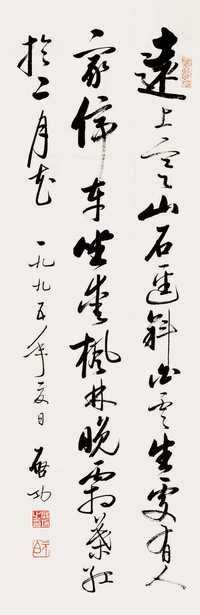 遠上寒山石逕斜白雲生處有人
家停車坐愛楓林晚霜葉紅
於二月花 一九九五年夏日 啟功